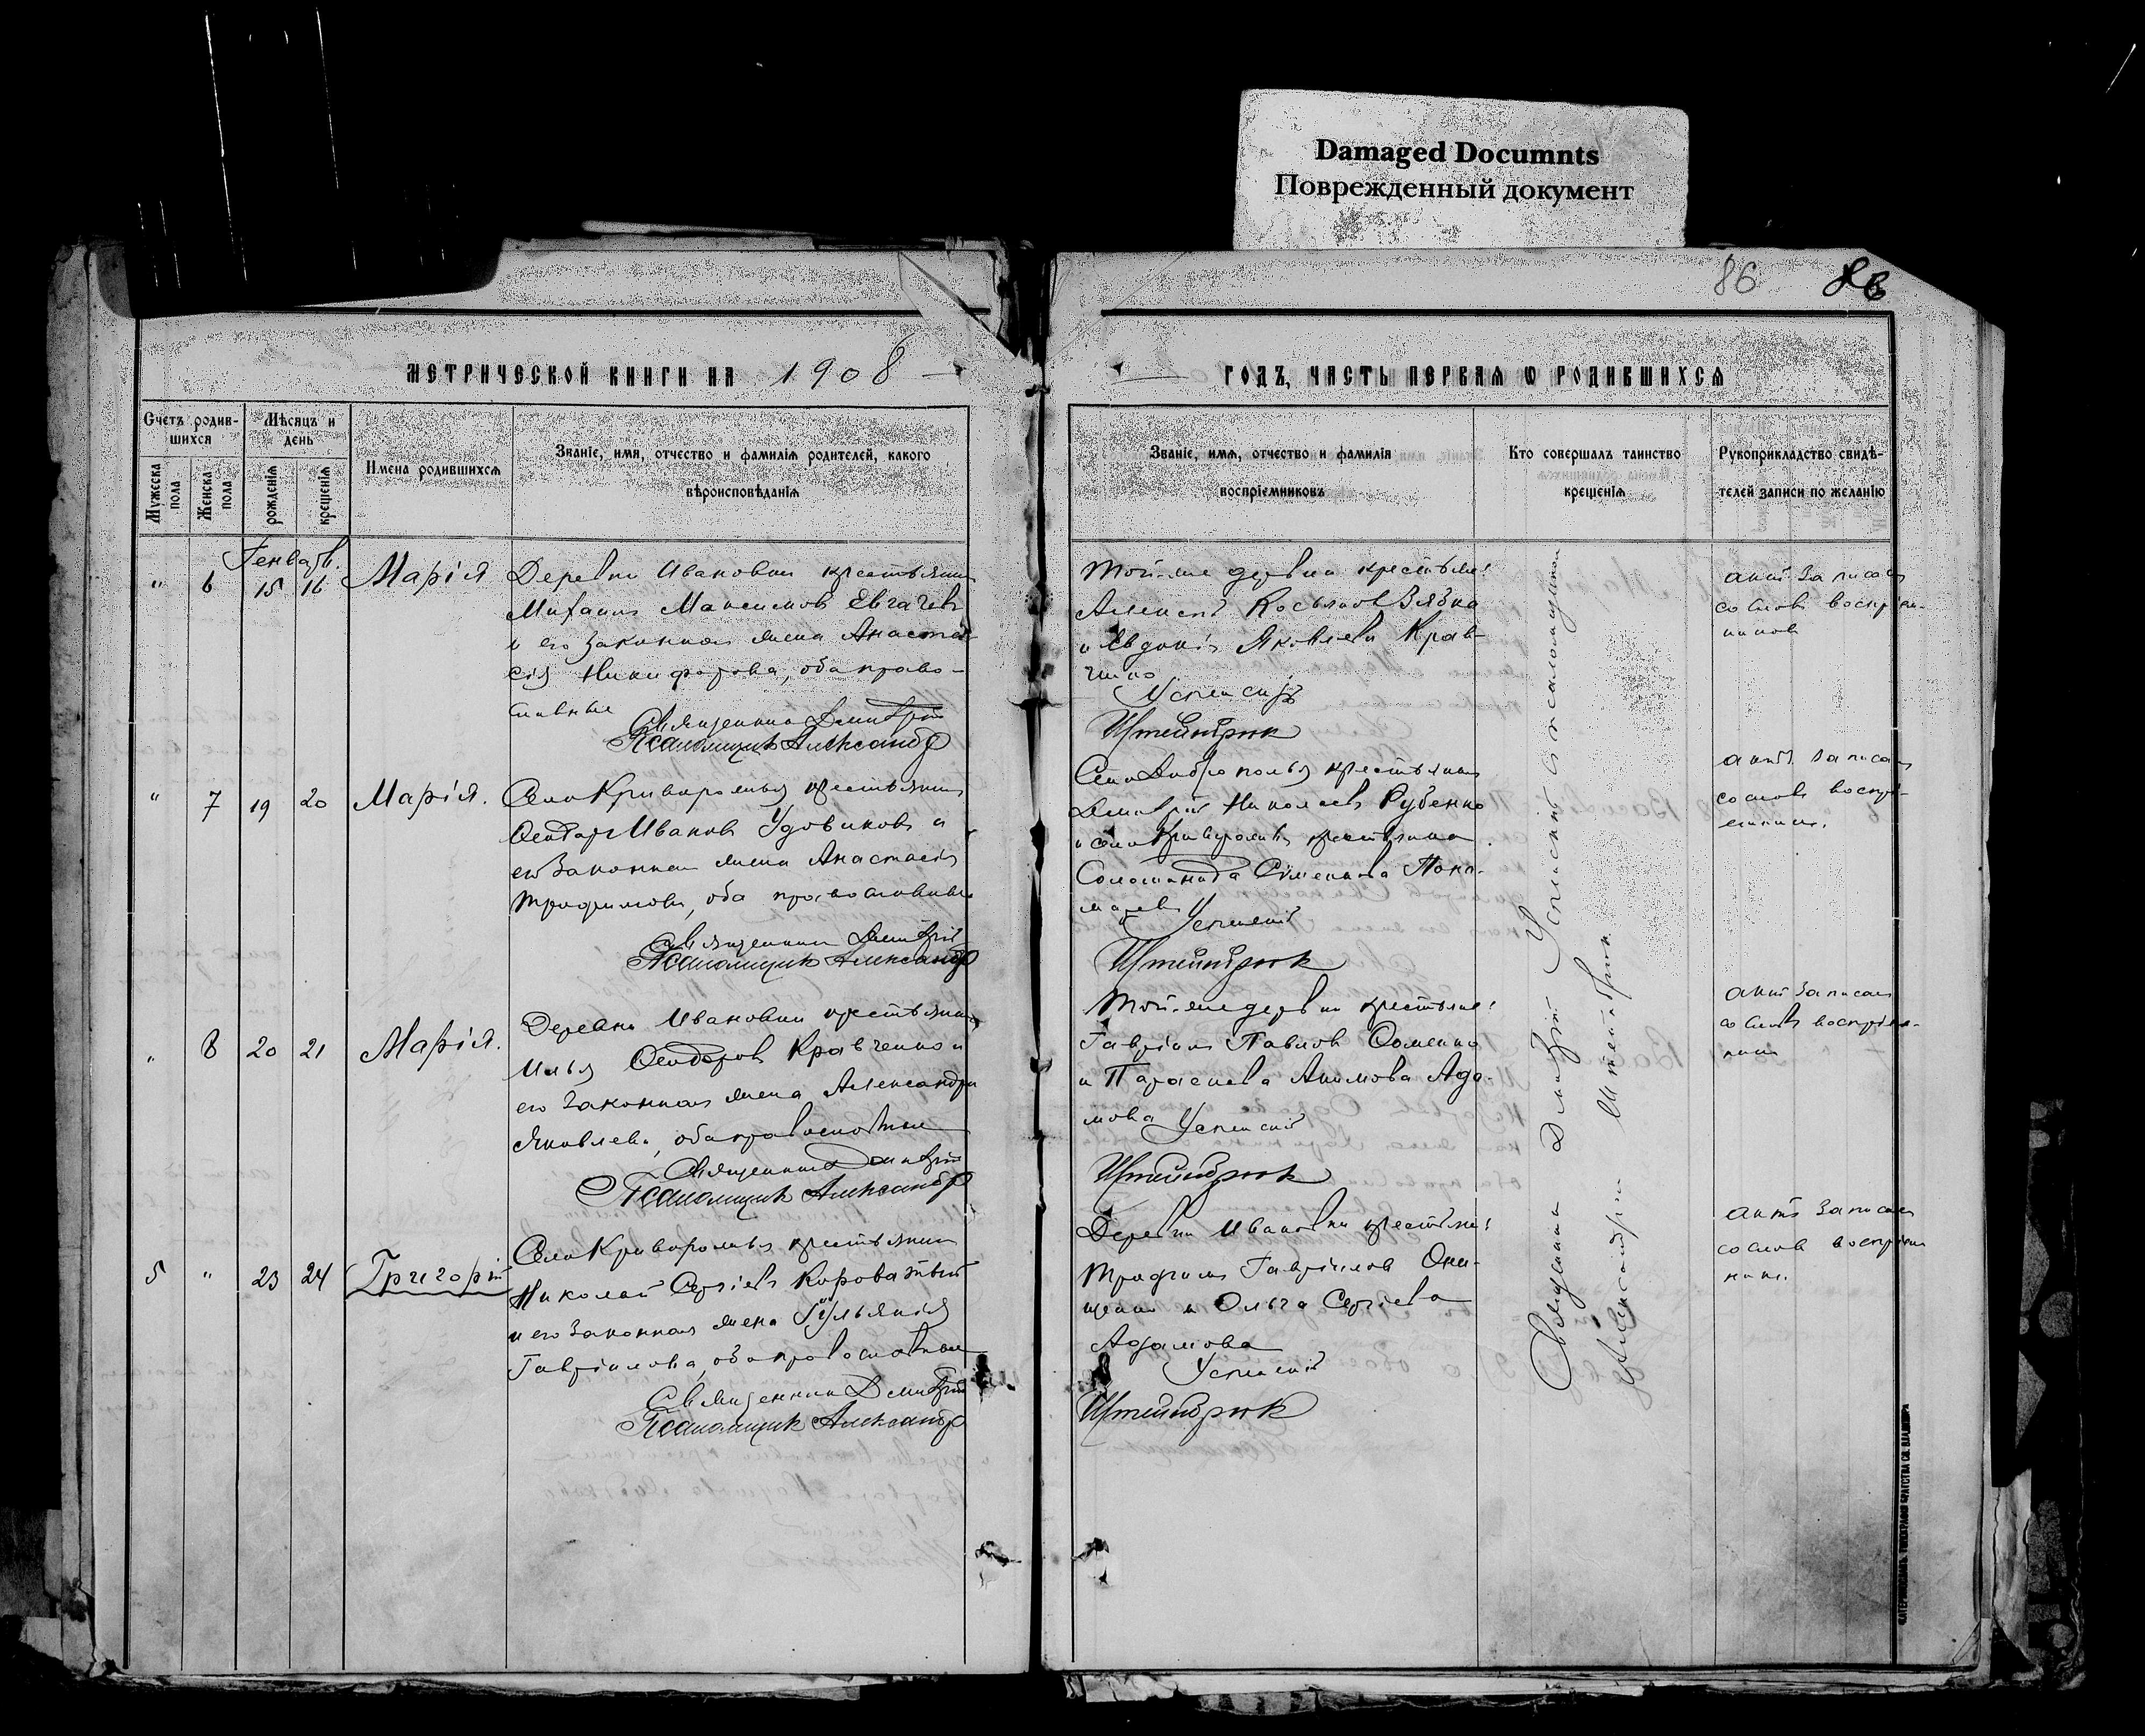 Damaged Documnts
Поврежденный документ
86 86
МЕТРИЧЕСКОЙ КНИГИ НА 1908
ГОДЪ, ЧАСТЬ ПЕРВАЯ Ѡ РОДИВШИХСЯ
Счетъ родив-
шихся
Мужеска пола
Женска пола
Мѣсяцъ и
день
рожденія
крещенія
Имена родившихся
Званіе, имя, отчество и фамилія родителей, какого
вѣроисповѣданія
Званіе, имя, отчество и фамилія
воспріемниковъ
Кто совершалъ таинство
крещенія
Рукоприкладство свидѣ-
телей записи по желанію
Генварь.
" 6 15 16 Марія
Деревни Ивановки крестьянинъ
Михаилъ Максимовъ Евгачевъ
и его законная жена Анаста-
сія Никифорова, оба право-
славные
Священникъ Димитрій
Псаломщикъ Александр
Той-же деревни крестьяне:
Алексѣй Косьмовъ Вязка
и Евдокія Яковлева Крав-
ченко
Успенскій
Штейнбрюк
актъ записанъ
со словъ воспріем-
никовъ
" 7 19 20 Марія.
Села Криворожья крестьянинъ
Ѳеодоръ Ивановъ Удовиковъ и
его законная жена Анастасія
Трофимова, оба православные
Священникъ Димитрій
Псаломщикъ Александр
Села Доброполья крестьянинъ
Димитрій Николаевъ Рубенко
и села Криворожья крестьянка
Соломонида Симеонова Поно-
марева
Успенскій
Штейнбрюк
актъ записанъ
со словъ воспрі-
емник.
" 8 20 21 Марія.
Деревни Ивановки крестьянинъ
Илья Ѳеодоровъ Кравченко и
его законная жена Александра
Яковлева, оба православные
Священникъ Димитрій
Псаломщик Александр
Той-же деревни крестьяне:
Гавріилъ Павловъ Соменко
и Параскева Акимова Ада-
мова
Успенскій
Штейнбрюк
актъ записанъ
со словъ воспріем-
ник
5 " 23 24 Григорій
Села Криворожья крестьянинъ
Николай Сергіевъ Короватый
и его законная жена Іульянія
Гавріилова, оба православные
Священникъ Димитрій
Псаломщик Александр
Деревни Ивановки крестьяне:
Трофимъ Гавріиловъ Они-
щенко и Ольга Сергіева
Адамова
Успенскій
Штейнбрюк
актъ записанъ
со словъ воспріем
ник.
Священникъ Димитрій Успенскій съ псаломщикомъ
Александромъ Штейнбрюк